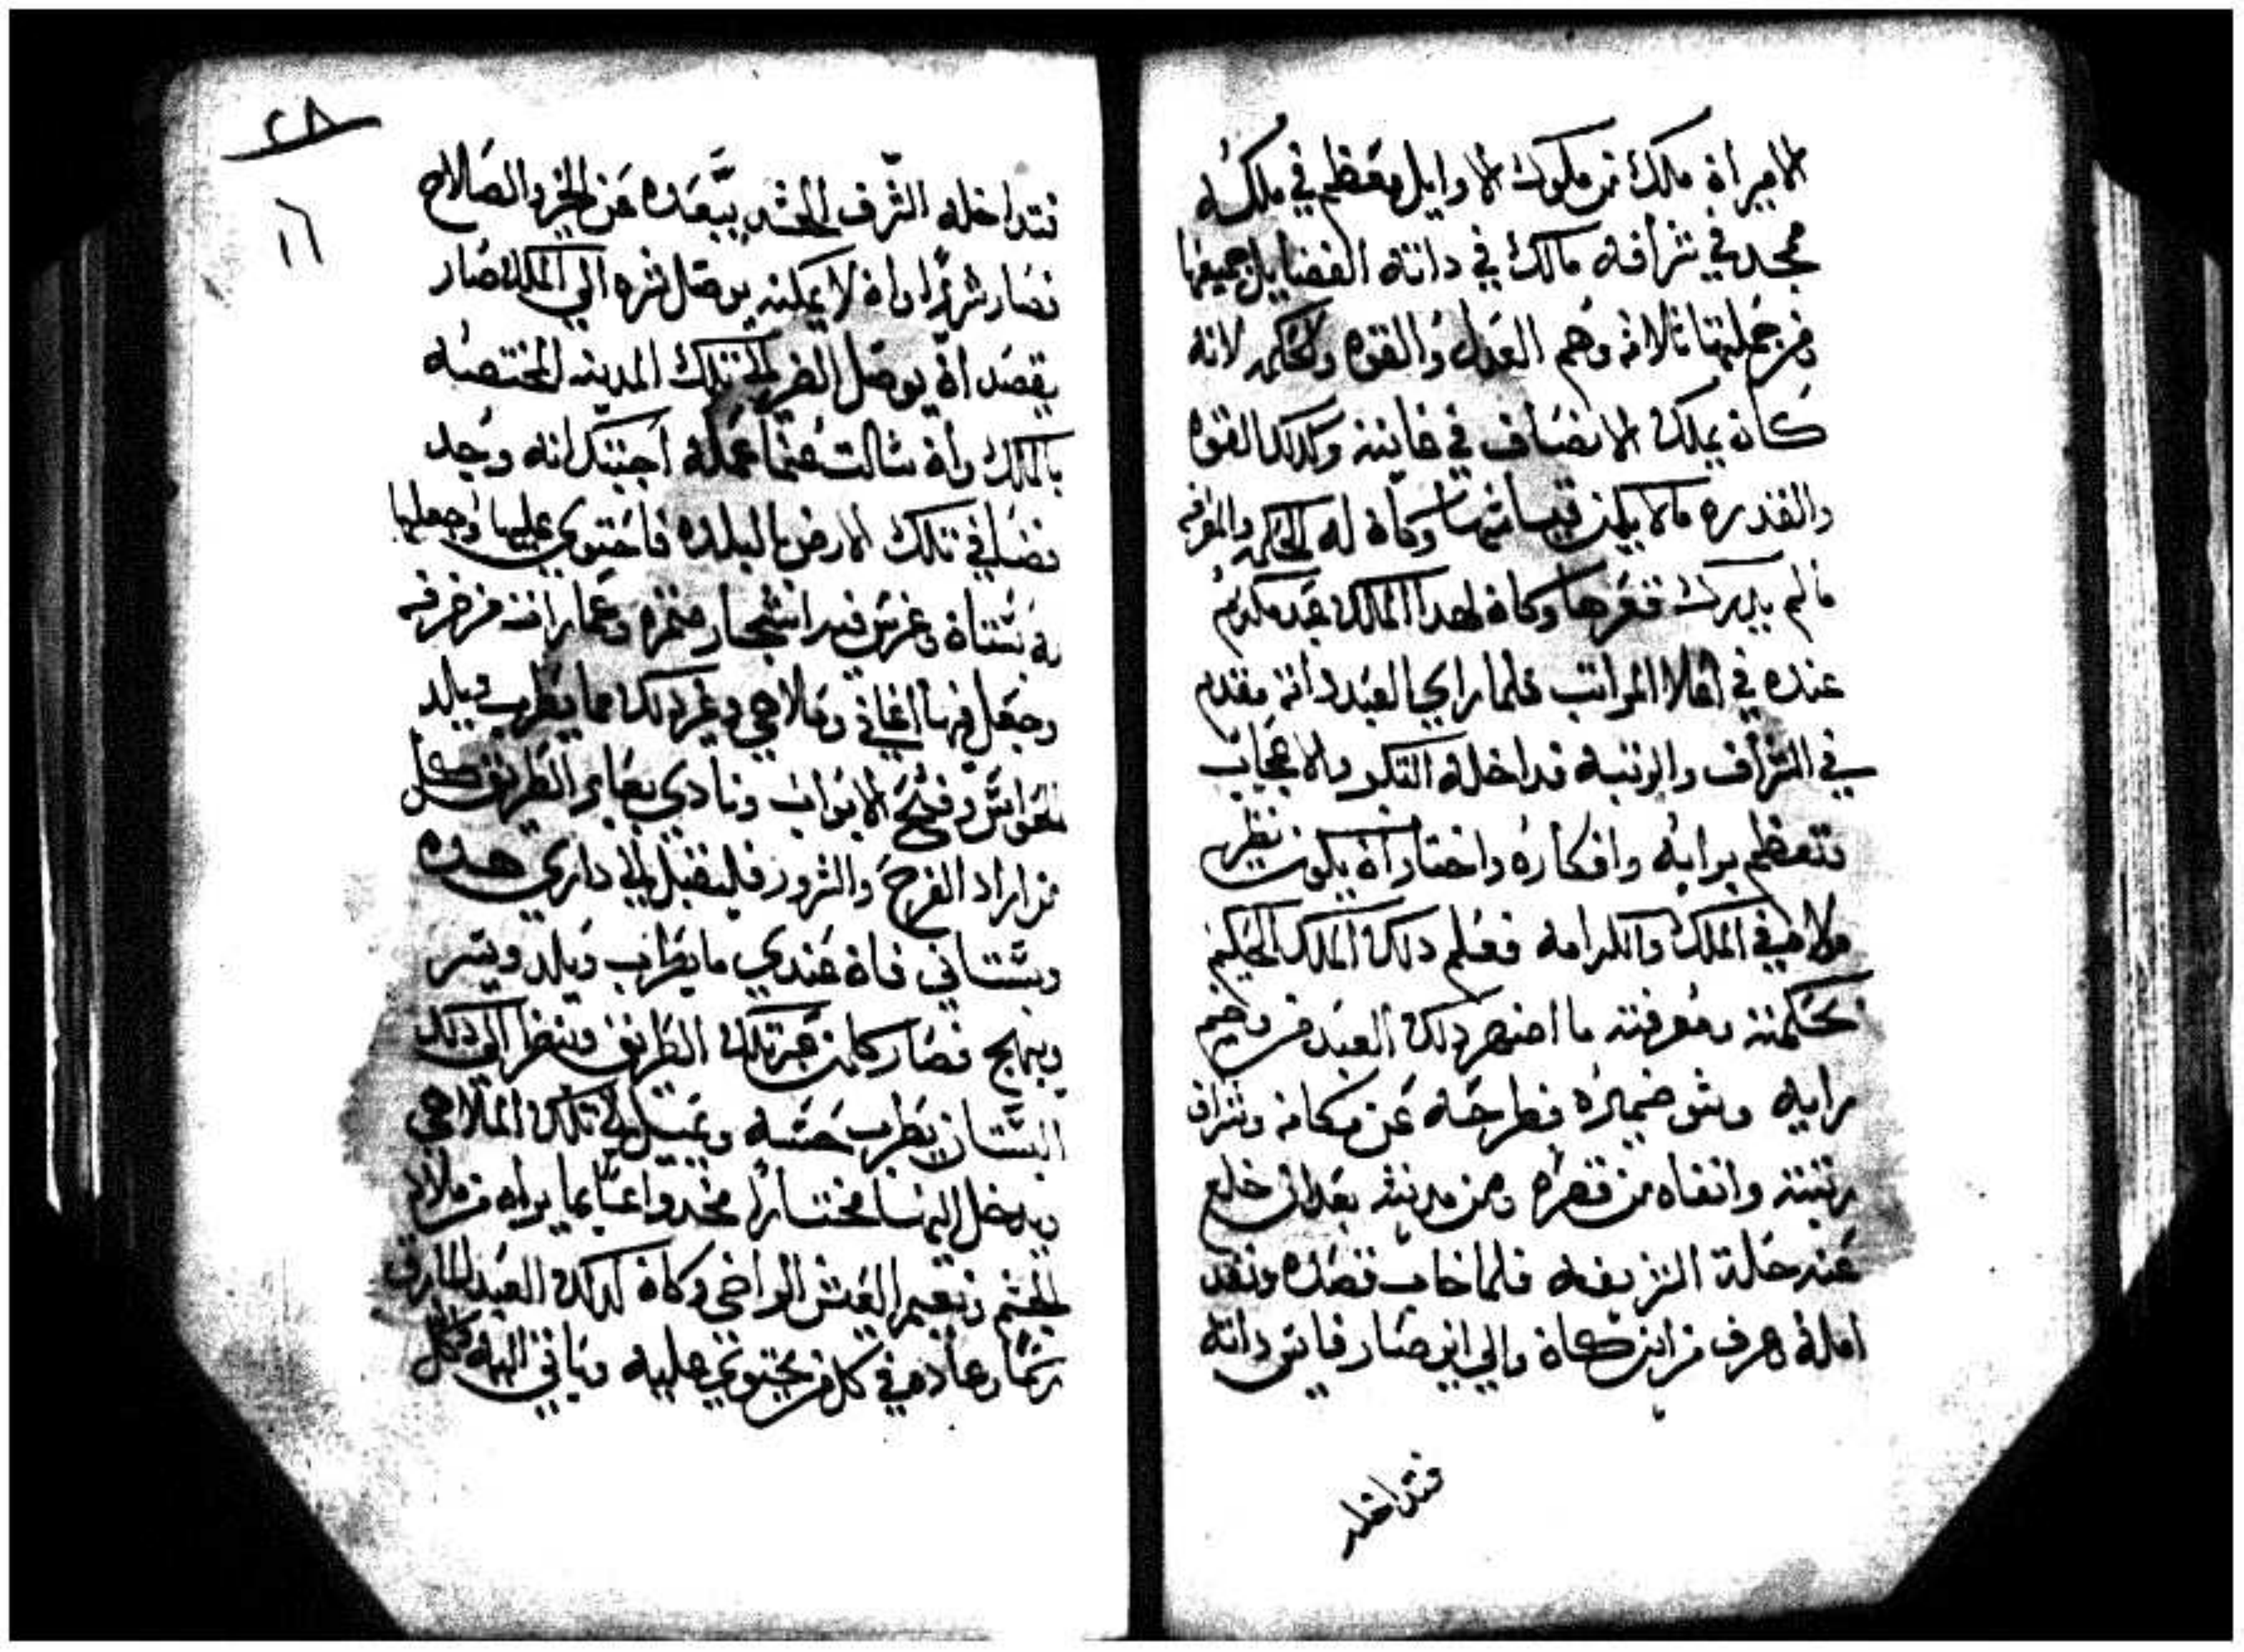 الاميراة ملك من ملوك الاوايل معظم في ملكه
ممجد في شرافه مالك في داتة الفضايل جميعها
ومن جملتها تلاته وهم العدل والقوه والحكمه لانه
كان يملك الانصاف في غايته وكدلك القوه
والقدره مالا يمكن قياسها وكان له الحكمه والمعرفه
مالم يدرك قعرها وكان لهدا الملك عبد مكرم
عنده في اعلا المراتب فلما راي العبد داته مقدم
في الشرف والرتبه تداخله التكبر والاعجاب
فتعظم برايه وافكاره واختار ان يكون نظير
مولاه في الملك والكرامه فعلم دلك الملك الحكيم
بحكمته ومعرفته ما اضهر دلك العبد من
رايه وسو ضميره فطرحه عن مكانه وشراف
رتبته وانفاه من قصره ومن مدينته بعد ان خلع
عنه حلة الشريفه فلما خاب قصده وفقد
امله وعرف من اين كان والي اين صار فايس داته
فتداخله
٢٨
١٦
فتداخله الشر والحسد يتبعده عن الخير والصلاح
فصار شريرا وان لا يمكنه يوصل شره الي الملك صار
يقصد ان يوصل الضر الي تلك المدينه المختصه
بالملك وان سالت عنما عمله اجبتك انه وجد
فضا في تلك الارض بالبلده فاحتوي عليها وجعلها
له بستان وغرس فيه اشجار مثمره وعماراته مزخرفه
وجعل فيها اغاني وملاهي وغير دلك مما يطرب ويلد
الحواس وفتح الابواب ونادي بعابر الطريق كل
من اراد الفرح والسرور فليقبل الي داري هده
وبستاني فان عندي ما يطرب ويلد ويسر
ويبهج فصار كلمن عبر تلك الطريق وينظر الي دلك
البستان يطرب حسه ويميل الي تلك الملاهي
ويدخل اليها مختارا مخدوعا بما يراه من ملاد
الجسم ونعيم العيش الواخي وكان كدلك العبد المارق
كل من يحتوي عليه وياتي اليه